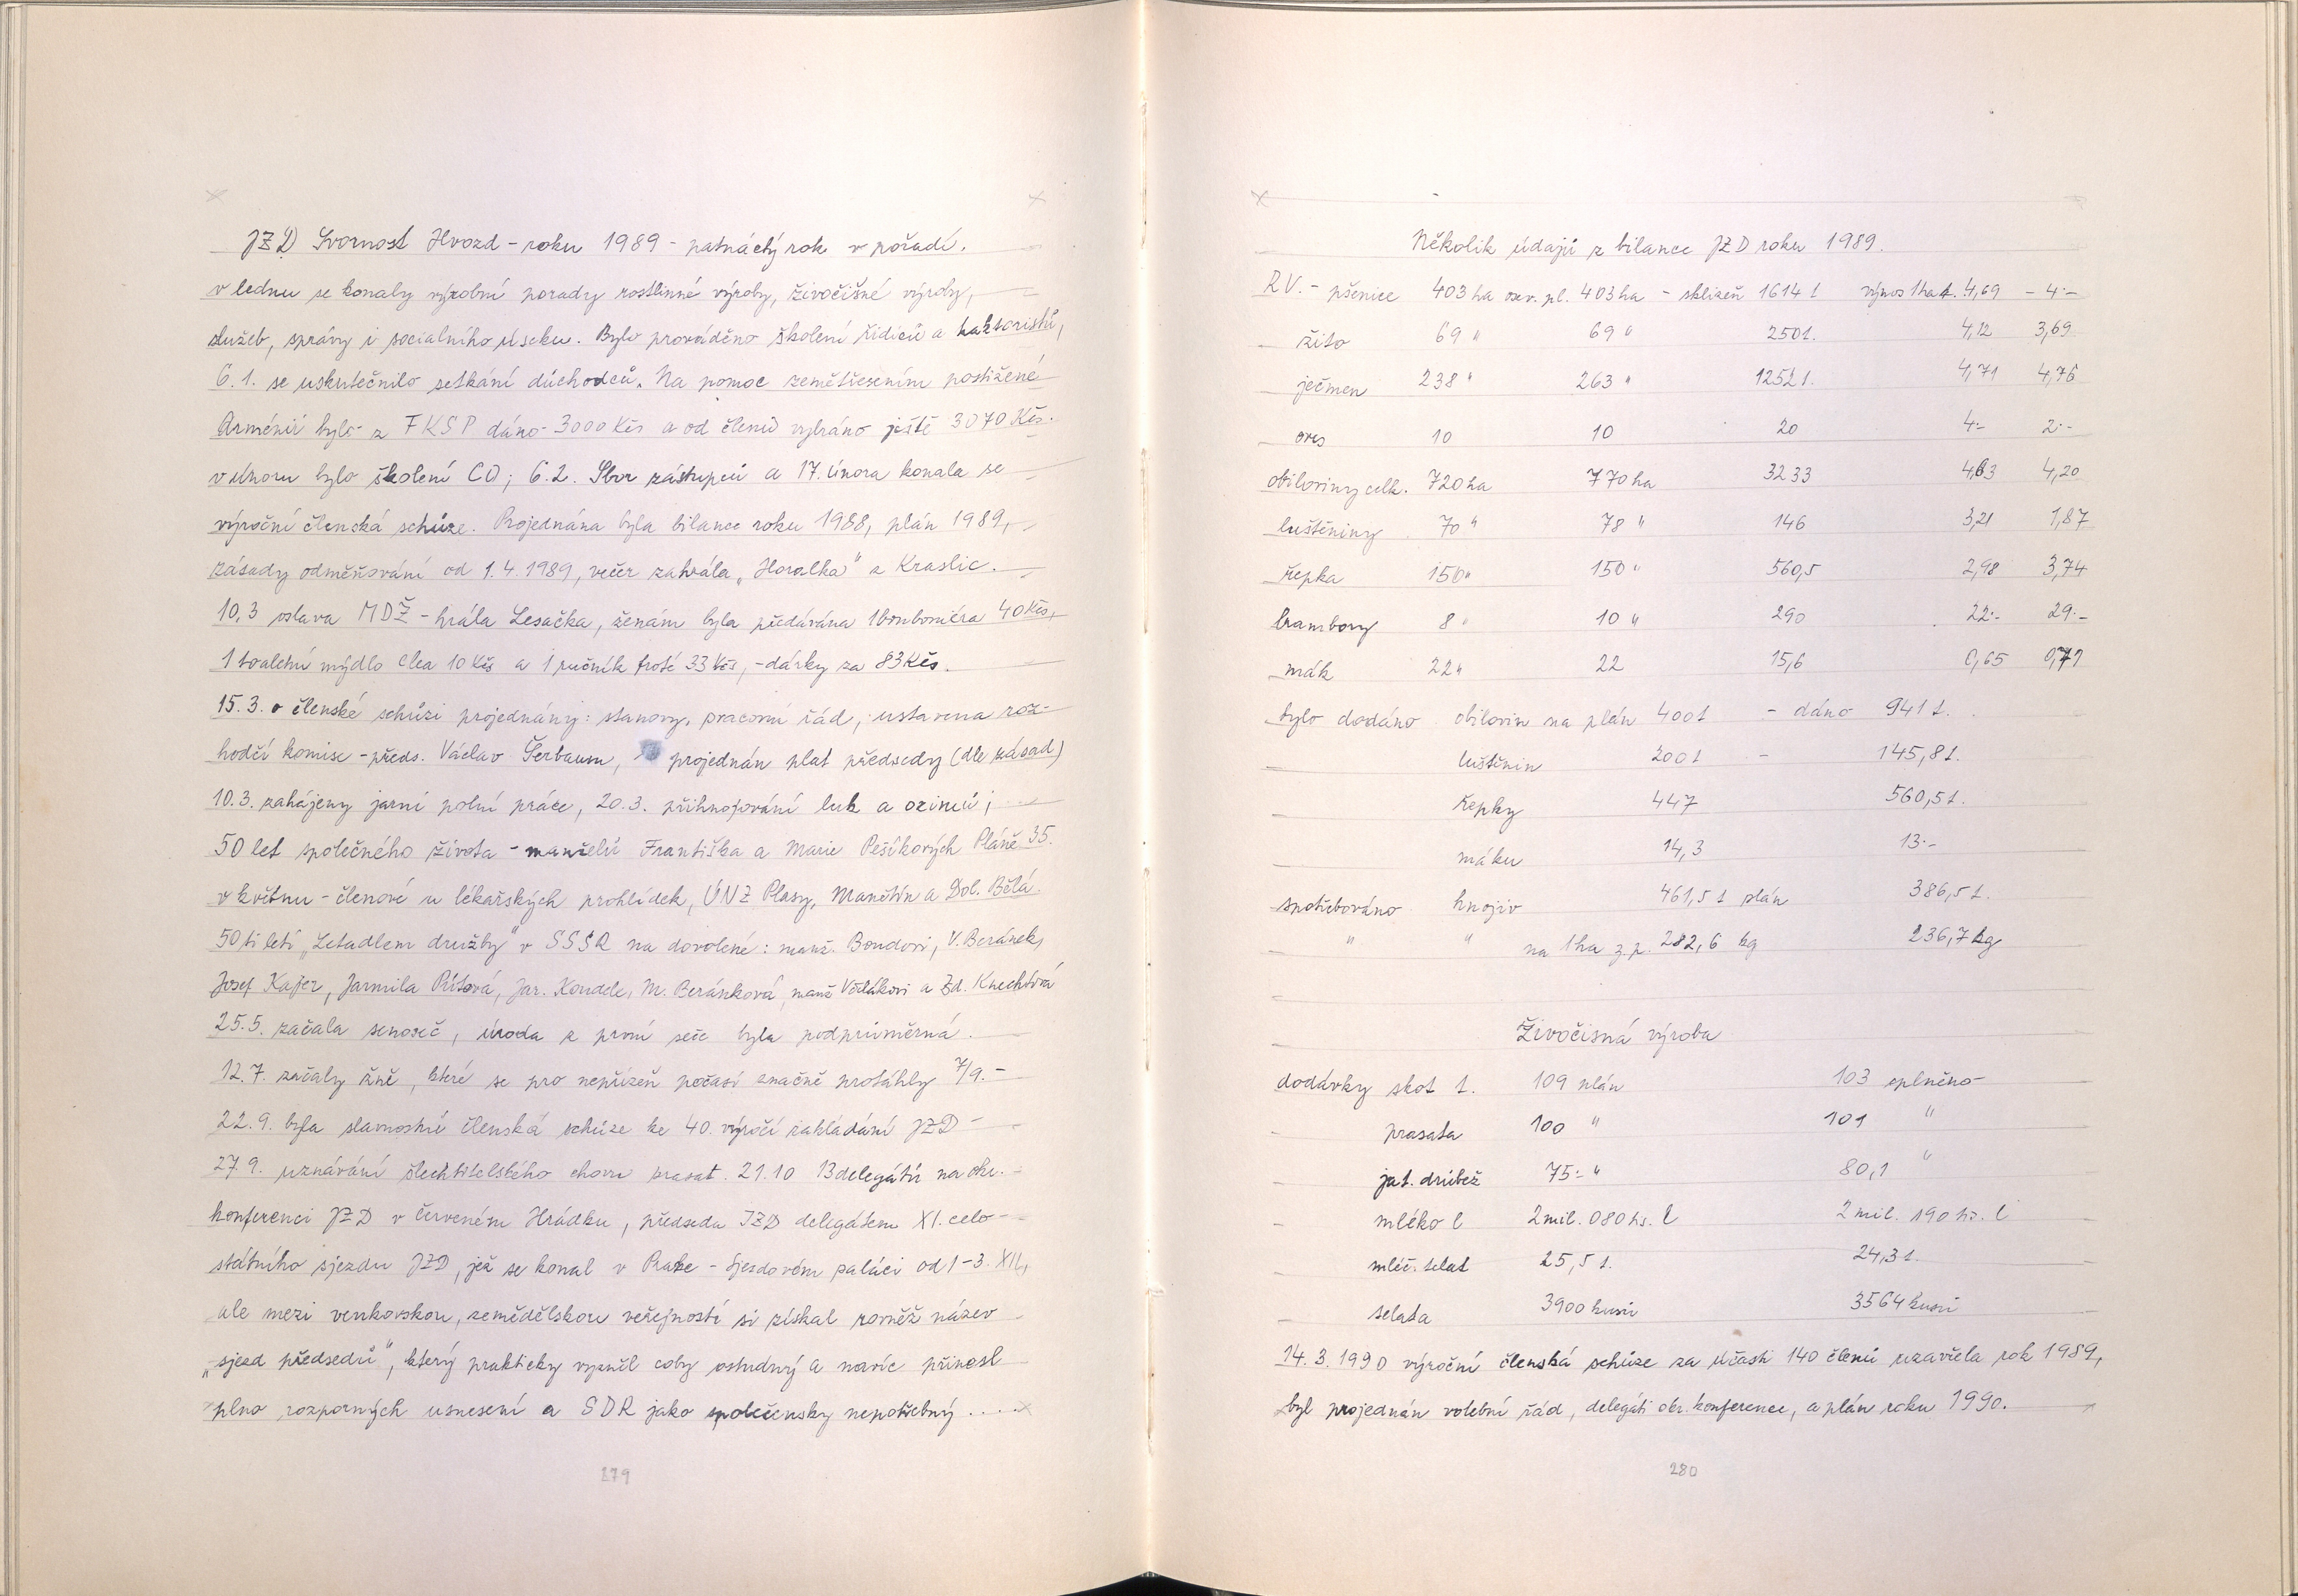 JZD Svornost Hvozd - roku 1989 - patnáctý rok v pořadí.
v lednu se konaly výrobní porady rostlinné výroby, živočišné výroby,
služeb, správy i socialního úseku. Bylo prováděno školení řidičů a traktoristů,
6.1. se uskutečnilo setkání důchodců. Na pomoc zemětřesením postižené
Arménii bylo z FKSP dáno 3000 Kčs a od členů vybráno ještě 3070 Kčs.
v únoru bylo školení CO; 6.2. Sbor zástupců a 17. února konala se
výroční členská schůze. Projednána byla bilance roku 1988, plán 1989,
zásady odměňování od 1.4.1989, večer zahrála „Horalka" z Kraslic.
10.3 oslava MDŽ - hrála Lesačka, ženám byla předávána 1 bonboniéra 40 Kčs,
1 toaletní mýdlo Clea 10 Kčs a 1 ručník froté 33 Kčs, - dárky za 83 Kčs.
15.3. v členské schůzi projednány: stanovy, pracovní řád, ustavena roz-
hodčí komise - předs. Václav Šerbaum, projednán plat předsedy (dle zásad)
10.3. zahájeny jarní polní práce, 20.3. přihnojování luk a ozimů;
50 let společného života - manželů Františka a Marie Pešíkových Pláně 35.
v květnu - členové u lékařských prohlídek, ÚNZ Plasy, Manětín a Dol. Bělá.
50ti letí „Letadlem družby" v SSSR na dovolené: manž. Boudovi, V. Beránek,
Josef Kajer, Jarmila Pítová, Jar. Koudele, M. Beránková, manž Vožlákovi a Zd. Knechtová
25.5. začala senoseč, úroda z první seče byla podprůměrná.
12.7. začaly žně, které se pro nepřízeň počasí značně protáhly 7/9. -
22.9. byla slavnostní členská schůze ke 40. výročí zakládání JZD -
27.9. uznávání šlechtitelského chovu prasat. 21.10 13 delegátů na okr.
konferenci JZD v Červeném Hrádku, předseda JZD delegátem XI. celo-
státního sjezdu JZD, jež se konal v Praze - Sjezdovém paláci od 1-3. XII,
ale mezi venkovskou, zemědělskou veřejností si získal rovněž název
„sjezd předsedů", který prakticky vyzněl coby ostudný a navíc přinesl
plno rozporných usnesení a SDR jako společensky nepotřebný ....
279
Několik údajů z bilance JZD roku 1989.
RV. - pšenice 403 ha osev. pl. 403 ha - sklizeň 1614 t výnos 1ha t. 4,69 - 4.-
žito 69 " 69 " 250 t. 4,12 3,69
ječmen 238 " 263 " 1252 t. 4,71 4,76
oves 10 10 20 4.- 2.-
obiloviny celk. 720 ha 770 ha 3233 4,63 4,20
luštěniny 70 " 78 " 146 3,21 1,87
řepka 150 " 150 " 560,5 2,98 3,74
brambory 8 " 10 " 290 22.- 29.-
mák 22 " 22 15,6 0,65 0,71
bylo dodáno obilovin na plán 400 t - dáno 941 t.
luštěnin 200 t - 145,8 t.
řepky 447 560,5 t.
máku 14,3 13.-
spotřebováno hnojiv 461,5 t plán 386,5 t.
" " na 1ha z.p. 282,6 kg 236,7 kg
Živočisná výroba
dodávky skot t. 109 plán 103 splněno
prasata 100 " 101 "
jat. drůbež 75.- " 80,1 "
mléko l 2 mil. 080 tis. l 2 mil. 190 tis. l
mléč. telat 25,5 t. 24,3 t.
selata 3900 kusů 3564 kusů
14.3.1990 výroční členská schůze za účasti 140 členů uzavřela rok 1989,
byl projednán volební řád, delegáti okr. konference, a plán roku 1990.
280